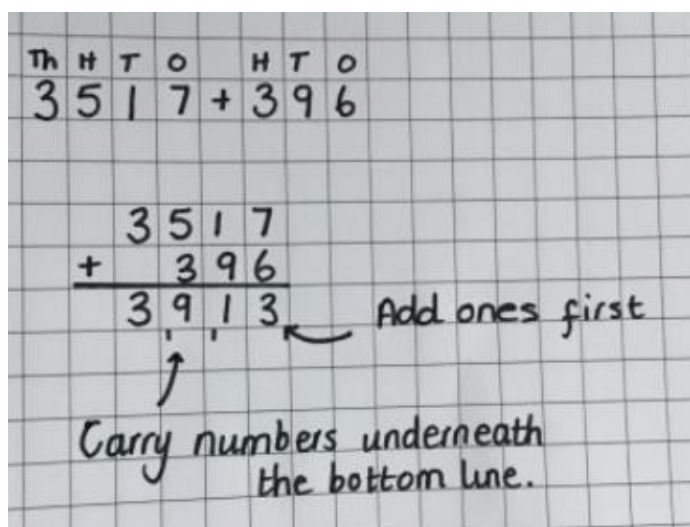 Th H T O H T O
3 5 1 7 + 3 9 6
3 5 1 7
+ 3 9 6
3 9 1 3
1 1
Add ones first
Carry numbers underneath
the bottom line.